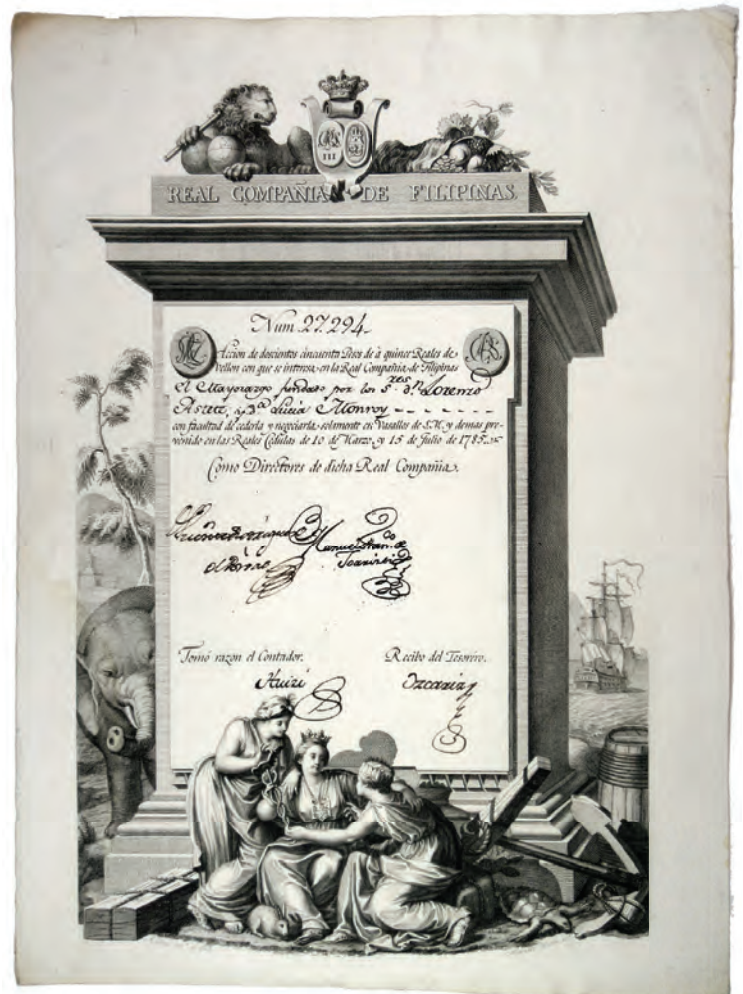 REAL COMPAÑIA DE FILIPINAS.
Num. 27.294.
Accion de doscientos cincuenta Pesos de à quince Reales de
Vellon con que se interesa en la Real Compañia de Filipinas
el Mayorazgo fundado por los S.res D.n Lorenzo
Astete, y D.a Lucia Monroy
con facultad de cederla y negociarla solamente en Vasallos de S.M. y demas pre-
venido en las Reales Cédulas de 10 de Marzo y 15 de Julio de 1785.
Como Directores de dicha Real Compañia.
Manuel
Tomó razon el Contador.
Recibo del Tesorero.